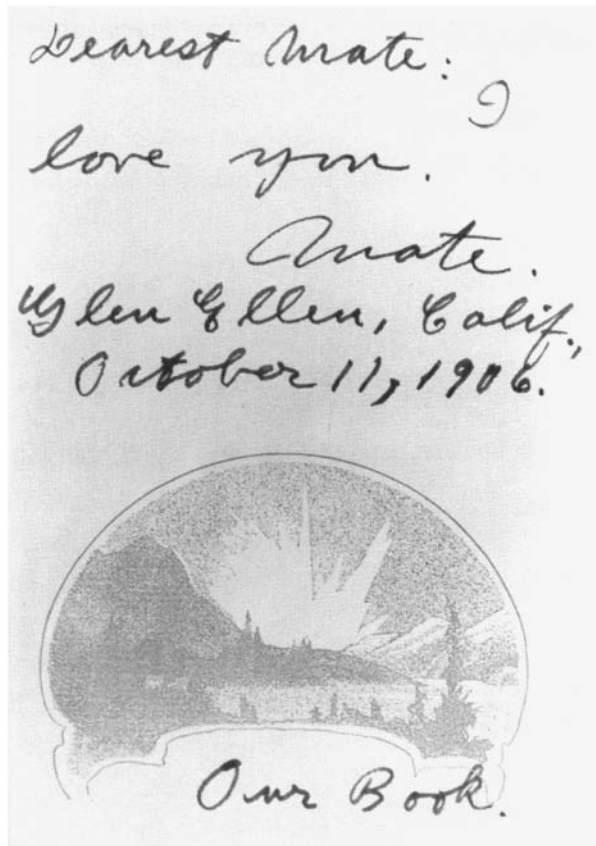 Dearest Mate:
I
love you.
Mate.
Glen Ellen, Calif.,
October 11, 1906.
Our Book.